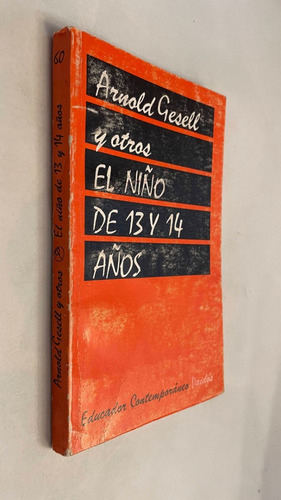 60
Arnold Gesell y otros El niño de 13 y 14 años
Arnold Gesell
y otros
EL NIÑO
DE 13 Y 14
AÑOS
Educador Contemporáneo Paidós